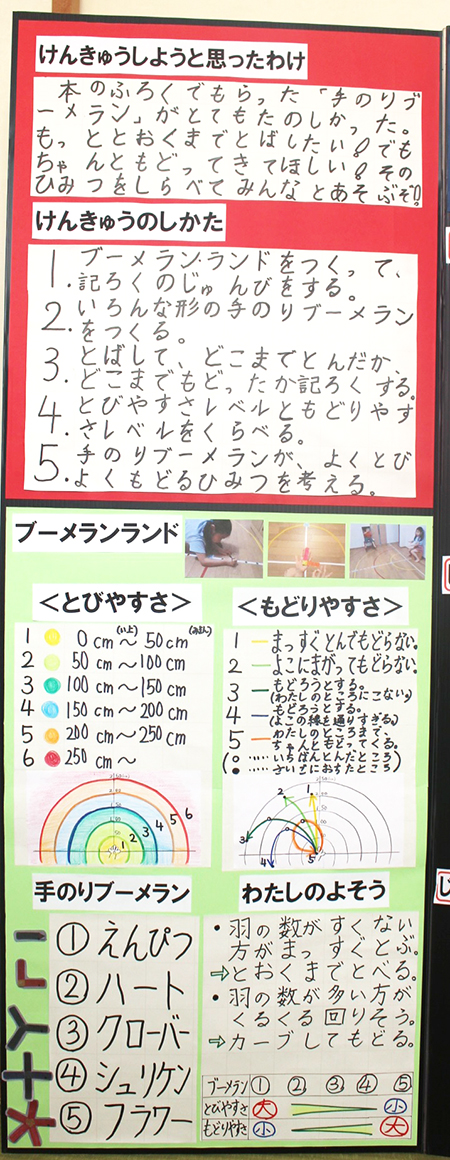 けんきゅうしようと思ったわけ
本のふろくでもらった「手のりブ
ーメラン」がとてもたのしかった。
もっととおくまでとばしたい!でも
ちゃんともどってきてほしい!その
ひみつをしらべてみんなとあそぶぞ!!
けんきゅうのしかた
1. ブーメランランドをつくって、
記ろくのじゅんびをする。
2. いろんな形の手のりブーメラン
をつくる。
3. とばして、どこまでとんだか、
どこまでもどったか記ろくする。
4. とびやすさレベルともどりやす
さレベルをくらべる。
5. 手のりブーメランが、よくとび
よくもどるひみつを考える。
ブーメランランド
<とびやすさ>
1 0cm(い上)〜50cm(みまん)
2 50cm〜100cm
3 100cm〜150cm
4 150cm〜200cm
5 200cm〜250cm
6 250cm〜
1 2 3 4 5 6
<もどりやすさ>
1 まっすぐとんでもどらない。
2 よこにまがってもどらない。
3 もどろうとする。
(わたしのところにこない)
4 もどろうとする。
(よこの線を通りすぎる)
5 わたしのところまで、
ちゃんともどってくる。
(○……いちばんとんだところ)
●……さいごにおちたところ
1 2 3 4 5
手のりブーメラン
①えんぴつ
②ハート
③クローバー
④シュリケン
⑤フラワー
わたしのよそう
・羽の数がすくない
方がまっすぐとぶ。
⇒とおくまでとべる。
・羽の数が多い方が
くるくる回りそう。
⇒カーブしてもどる。
ブーメラン ① ② ③ ④ ⑤
とびやすさ 大 小
もどりやすさ 小 大